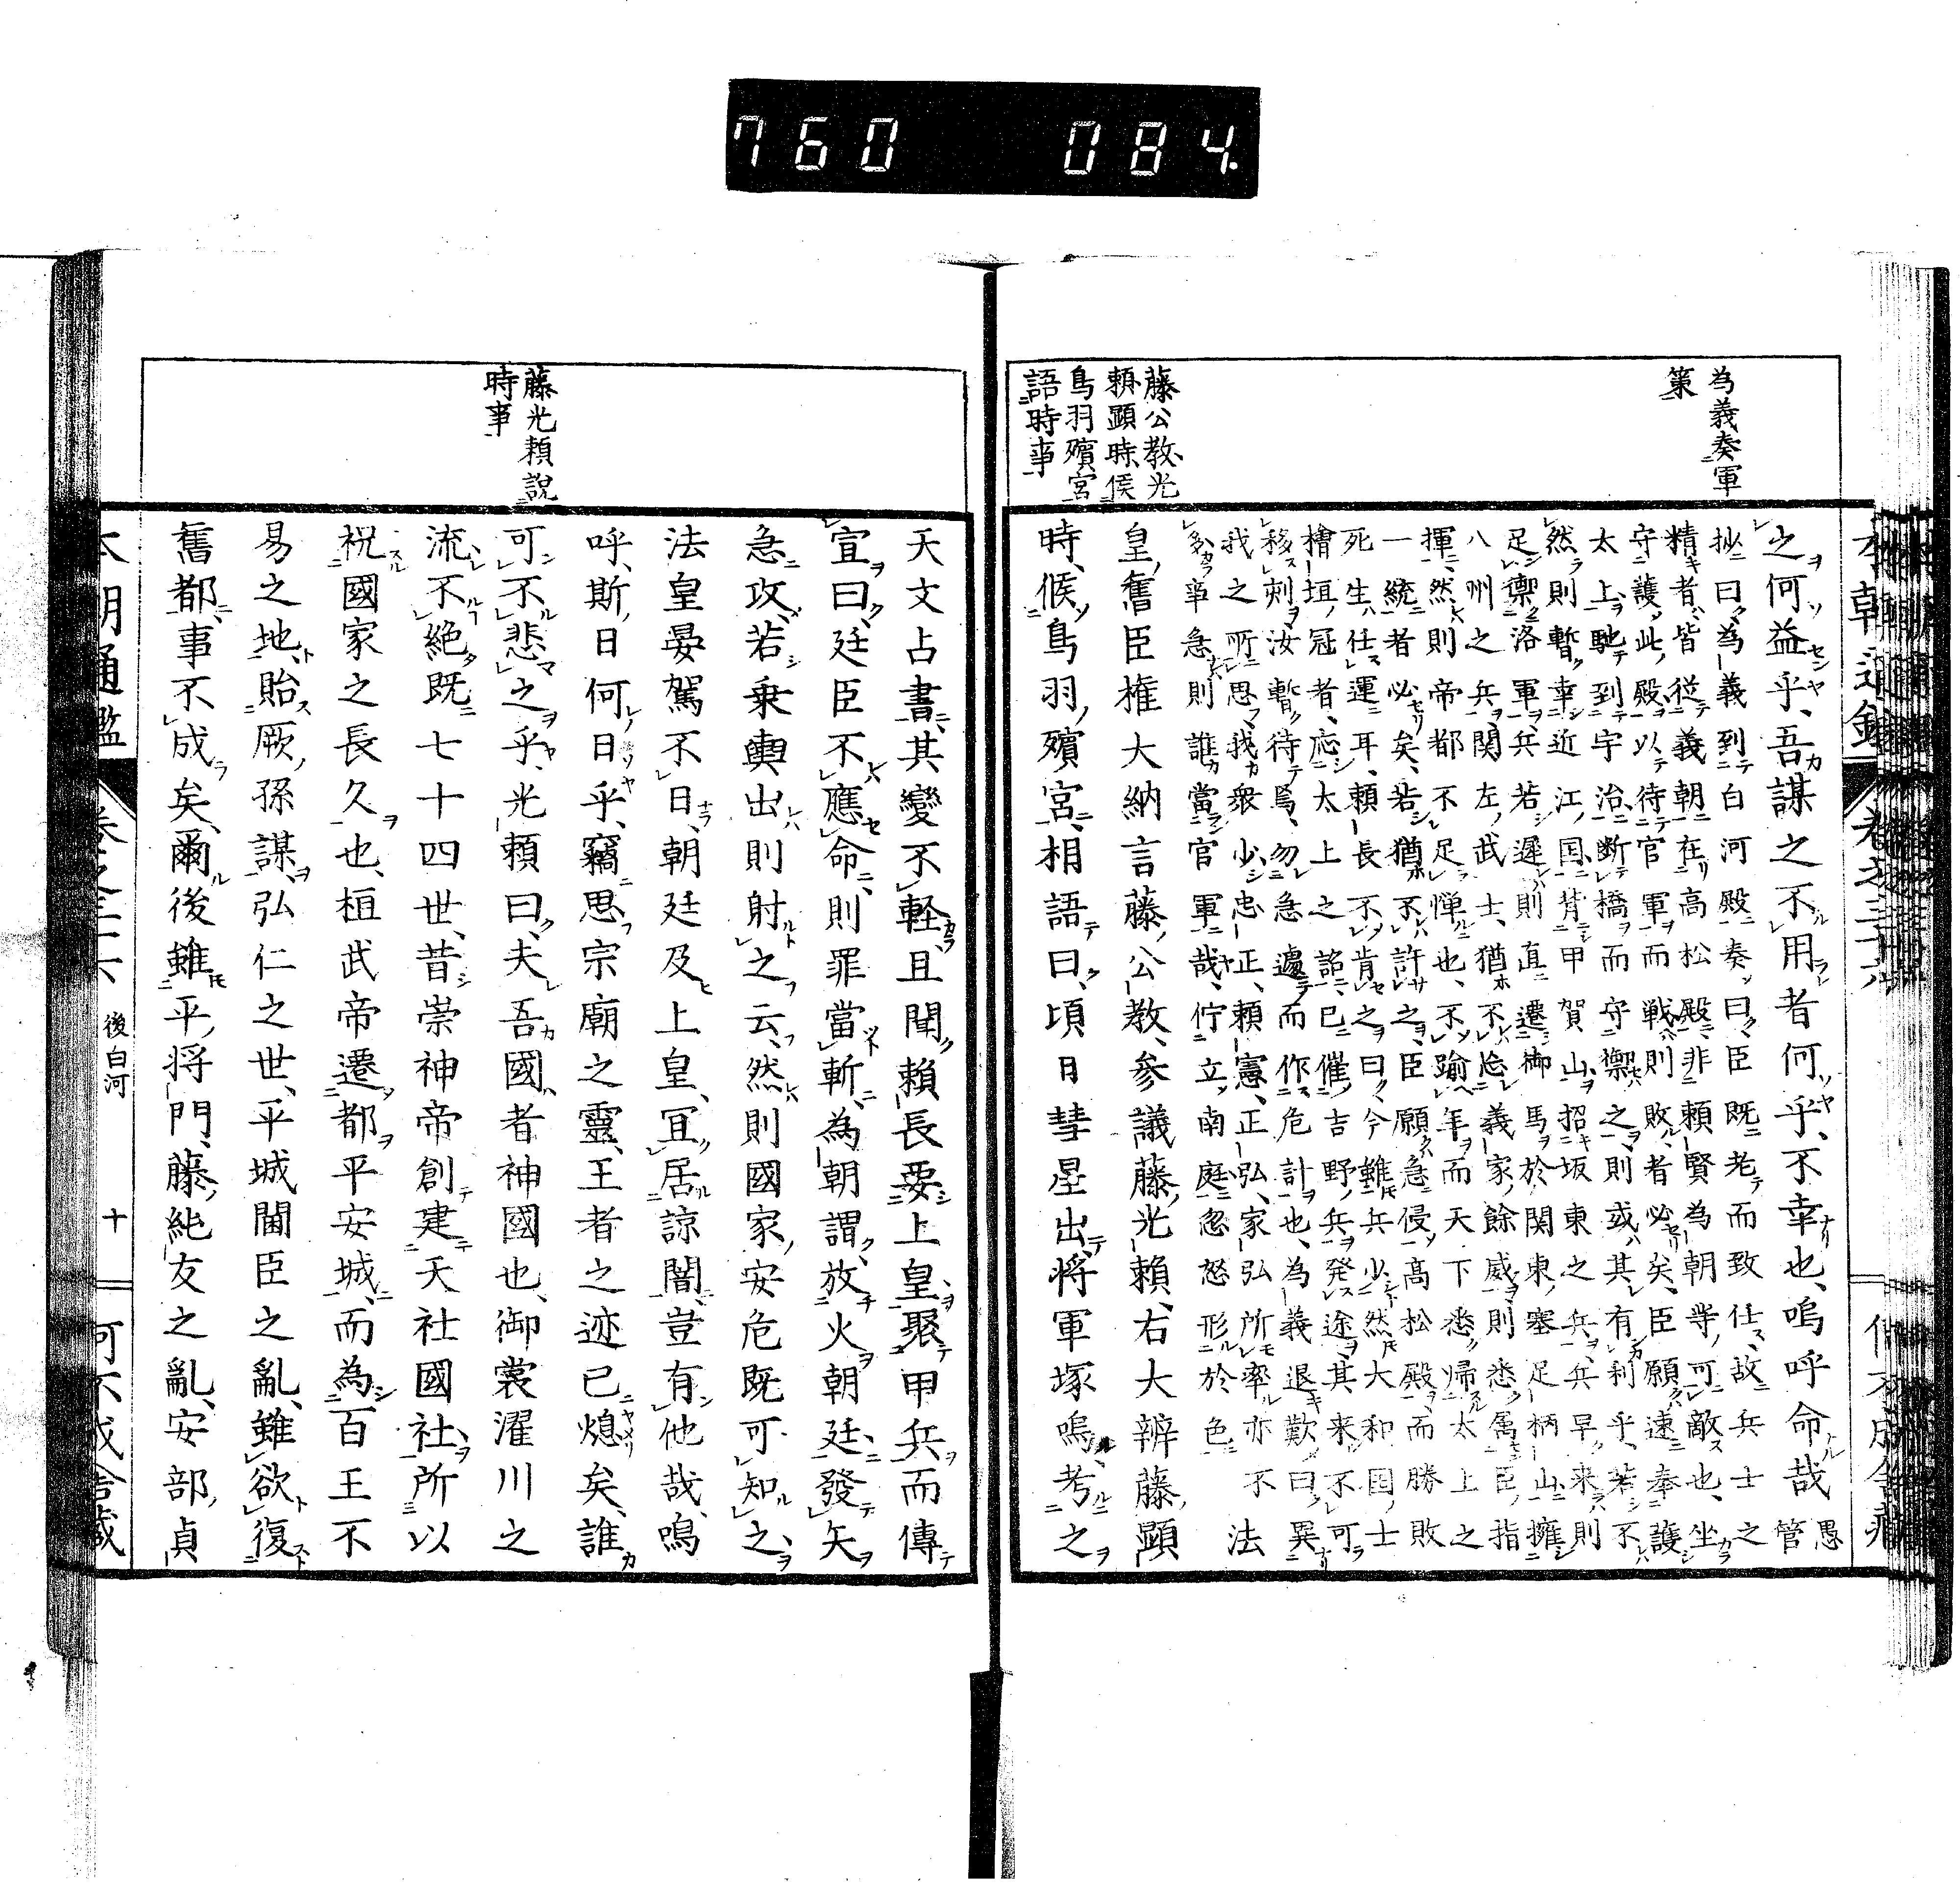 760 084.
為義奏軍
策
藤公教光
頼顕時侯
鳥羽殯宮
語時事
之何益乎、吾謀之不用者何乎、不幸也、嗚呼命哉愚管
抄曰為義到白河殿奏曰臣既老而致仕故兵士之
精者皆従義朝在高松殿非頼賢為朝等可敵也、坐
守護此殿以待官軍而戦則敗者必矣、臣願速奉護
太上馳到宇治断橋而守禦之則或其有利乎、若不
然則暫幸近江国背甲賀山招坂東之兵、兵早来則
足禦洛軍、兵若遅則直遷御馬於関東塞足柄山擁
八州之兵関左武士猶不忘義家餘威則悉属臣指
揮、然則帝都不足憚也、不踰年而天下悉帰太上之
一統者必矣、若猶不許之、臣願急侵高松殿而勝敗
死生仕運耳、頼長不肯之曰今雖兵少然大和国士
檜垣冠者、応太上之詔已催吉野兵発途其来不可
移刻汝暫待焉、勿急遽而作危計也、為義退歎曰異
我之所思我衆少忠正、頼憲、正弘、家弘所率亦不
多事急則誰當官軍哉、佇立南庭忽怒形於色 法
皇舊臣権大納言藤公教、参議藤光頼、右大辨藤顕
時、候鳥羽殯宮相語曰、頃日彗星出、将軍塚鳴、考之
天文占書其變不軽、且聞頼長要上皇聚甲兵而傳
宣曰、廷臣不應命、則罪當斬、為朝謂放火朝廷、發矢
急攻、若乗輿出則射之云、然則國家安危既可知之
法皇晏駕不日、朝廷及上皇、冝居諒闇、豈有他哉、鳴
呼、斯日何日乎、竊思宗廟之靈、王者之迹已熄矣、誰
可不悲之乎、光頼曰、夫吾國者神國也、御裳濯川之
流不絶既七十四世、昔崇神帝創建天社國社、所以
祝國家之長久也、桓武帝遷都平安城、而為百王不
易之地、貽厥孫謀、弘仁之世、平城閫臣之亂、雖欲復
舊都、事不成矣、爾後雖平将門、藤純友之亂、安部貞
藤光頼説
時事
後白河
十